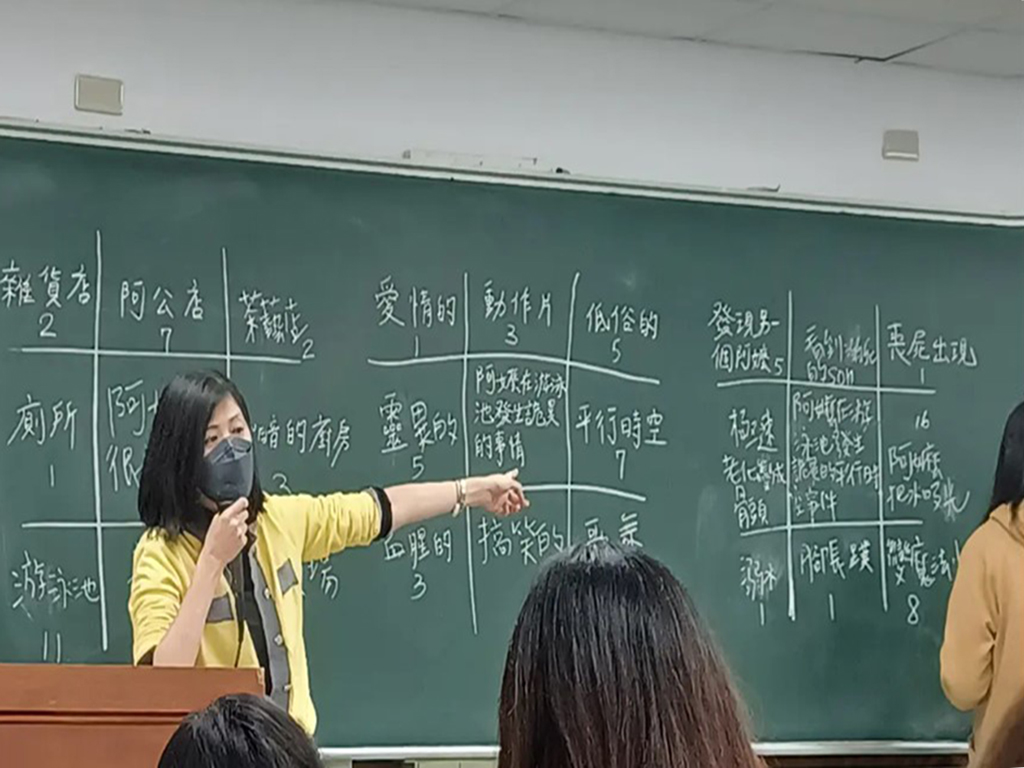 雜貨店
2
阿公店
7
2
廁所
1
阿
很
暗的廚房
3
游泳池
11
場
愛情的
1
動作片
3
低俗的
5
靈異的
5
阿嬤在游泳
池發生詭異
的事情
平行時空
7
血腥的
3
搞笑的
發現另一
個阿嬤5
看到
的son
喪屍出現
1
極速
老化變成
骨頭
阿嬤在
泳池發生
詭異的平行時
空事件
16
阿嬤
把水喝光
溺水
1
1
8